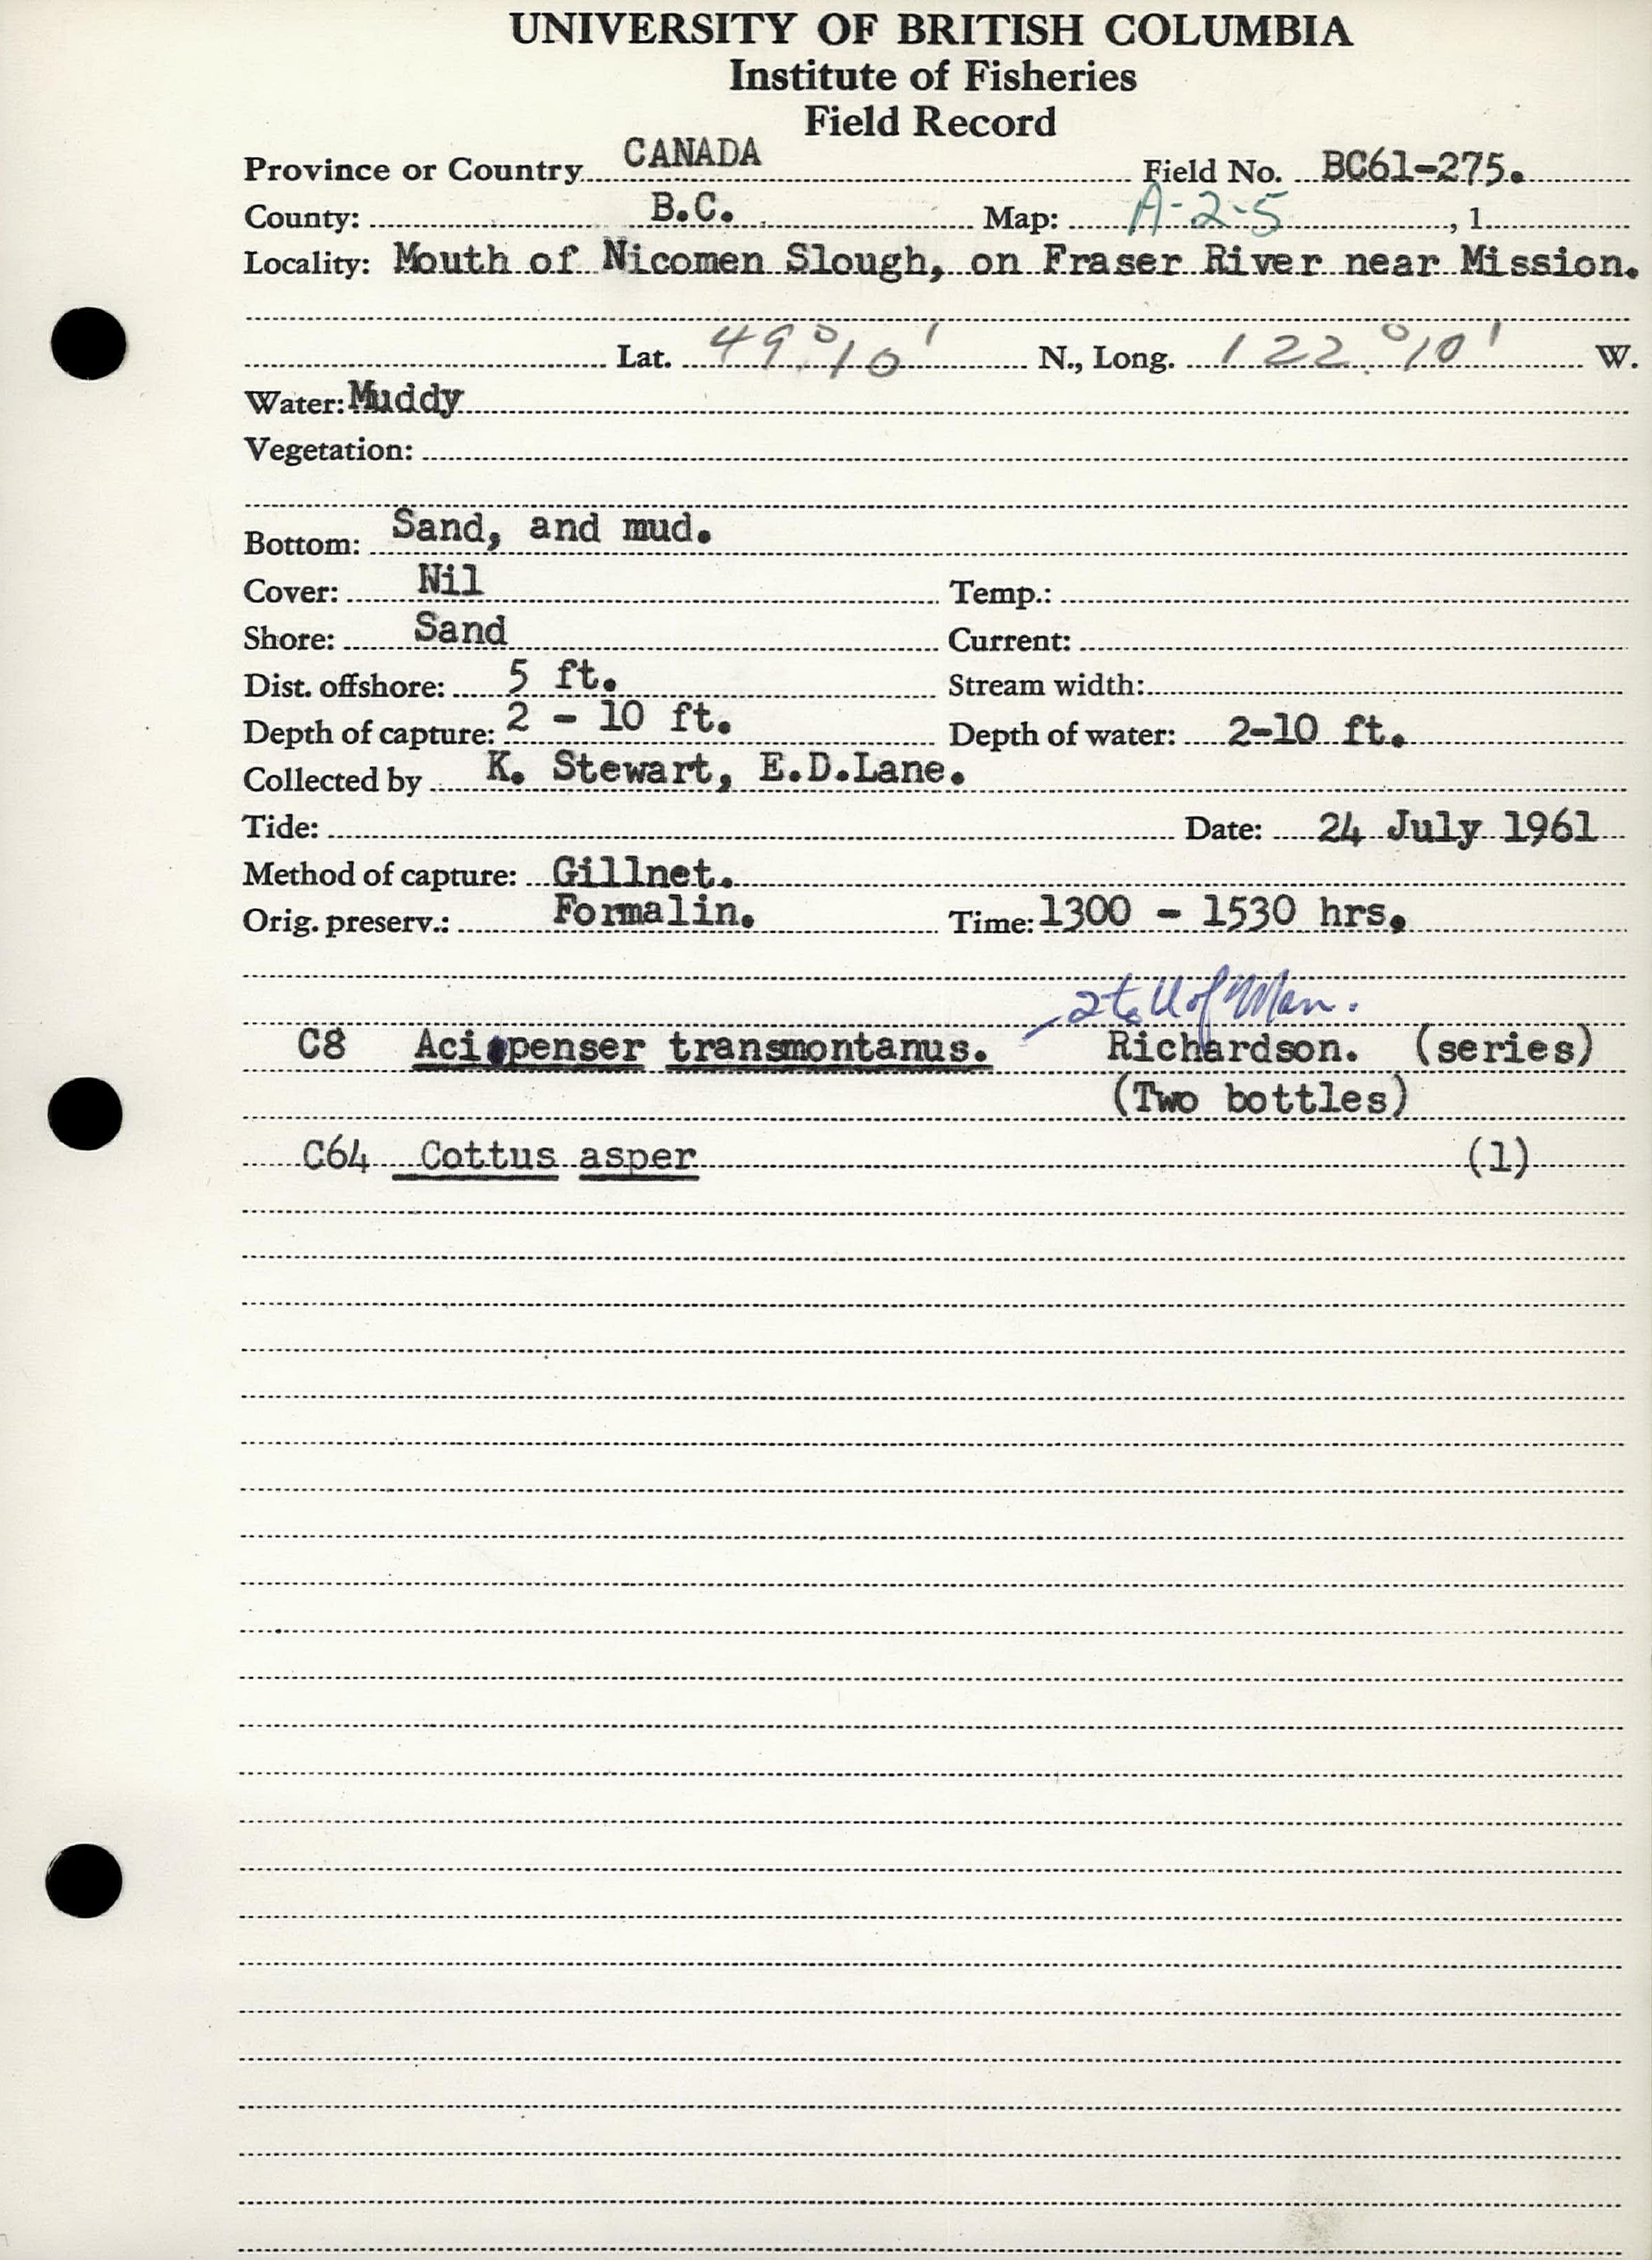 UNIVERSITY OF BRITISH COLUMBIA
Institute of Fisheries
Field Record
Province or Country CANADA Field No. BC61-275.
County: B.C. Map: A-2-5, 1
Locality: Mouth of Nicomen Slough, on Fraser River near Mission.
Lat. 49°10' N., Long. 122°10' W.
Water: Muddy
Vegetation:
Bottom: Sand, and mud.
Cover: Nil Temp.:
Shore: Sand Current:
Dist. offshore: 5 ft. Stream width:
Depth of capture: 2 - 10 ft. Depth of water: 2-10 ft.
Collected by K. Stewart, E.D.Lane.
Tide: Date: 24 July 1961
Method of capture: Gillnet.
Orig. preserv.: Formalin. Time: 1300 - 1530 hrs.
U of Man.
C8 Acipenser transmontanus. Richardson. (series)
(Two bottles)
C64 Cottus asper (1)